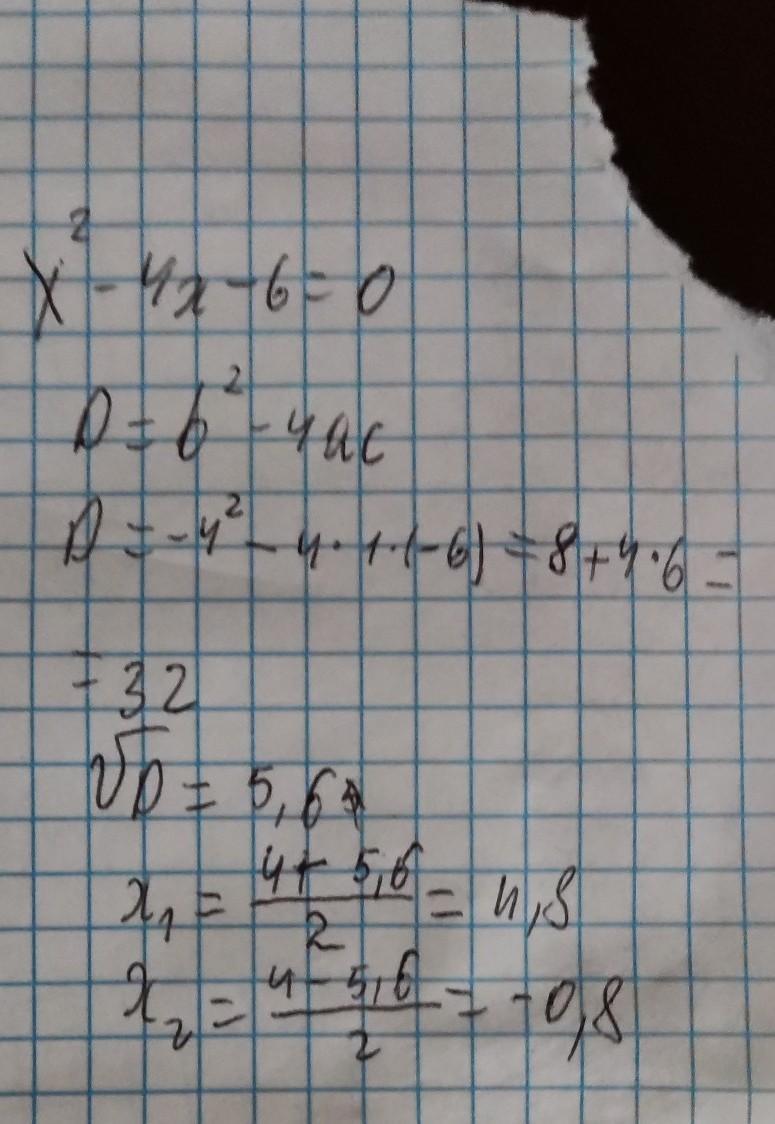 x² - 4x - 6 = 0
D = b² - 4ac
D = -4² - 4·1·(-6) = 8 + 4·6 =
= 32
√D = 5,6
x₁ = (4 + 5,6)/2 = 4,8
x₂ = (4 - 5,6)/2 = -0,8